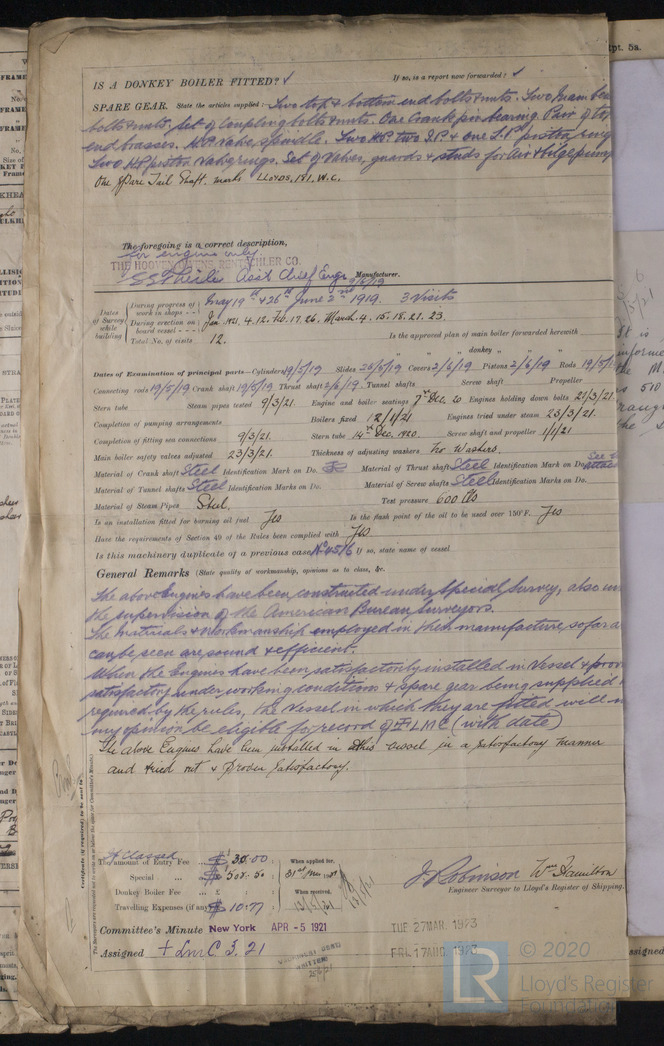 Rpt. 5a.
IS A DONKEY BOILER FITTED? ✓ If so, is a report now forwarded? ✓
SPARE GEAR. State the articles supplied:— Two top & bottom end bolts & nuts. Two main
bolts & nuts, set of coupling bolts & nuts. One Crank pin bearing. Pair of top
end brasses. H.P. Valve spindle. Two H.P. two I.P. & one L.P. piston ring
Two H.P. piston Valve rings. Set of Valves, guards & studs for Air & bilge pump
One Spare Tail Shaft. marks LLOYDS, 181, W.C.
The foregoing is a correct description,
for engine only.
THE HOOVEN, OWENS, RENTSCHLER CO.
Asst Chief Engr Manufacturer.
Dates of Survey while building
During progress of work in shops -- May 19th & 26th June 2nd 1919. 3 Visits
During erection on board vessel --- Jan 1921. 4. 12. Feb. 17. 26. March. 4. 15. 18. 21. 23.
Total No. of visits 12. Is the approved plan of main boiler forwarded herewith
" " " donkey " " "
Dates of Examination of principal parts—Cylinders 19/5/19 Slides 26/5/19 Covers 2/6/19 Pistons 2/6/19 Rods 19/5/19
Connecting rods 19/5/19 Crank shaft 19/5/19 Thrust shaft 2/6/19 Tunnel shafts Screw shaft Propeller
Stern tube Steam pipes tested 9/3/21 Engine and boiler seatings 7th Dec. 20 Engines holding down bolts 21/3/21.
Completion of pumping arrangements Boilers fixed 12/1/21. Engines tried under steam 23/3/21.
Completion of fitting sea connections 9/3/21. Stern tube 14th Dec. 1920. Screw shaft and propeller 1/1/21
Main boiler safety valves adjusted 23/3/21. Thickness of adjusting washers No Washers.
Material of Crank shaft Steel Identification Mark on Do. Material of Thrust shaft Steel Identification Mark on Do. See
Material of Tunnel shafts Steel Identification Marks on Do. Material of Screw shafts Steel Identification Marks on Do.
Material of Steam Pipes Steel. Test pressure 600 lbs
Is an installation fitted for burning oil fuel Yes Is the flash point of the oil to be used over 150°F. Yes
Have the requirements of Section 49 of the Rules been complied with Yes
Is this machinery duplicate of a previous case If so, state name of vessel
General Remarks (State quality of workmanship, opinions as to class, &c.
The above Engines have been constructed under Special Survey, also
the supervision of the American Bureau Surveyors.
The materials & workmanship employed in their manufacture, so far
can be seen are sound & efficient.
When the Engines have been satisfactorily installed in Vessel &
satisfactory under working conditions & spare gear being supplied
required by the rules, the Vessel in which they are fitted will
my opinion be eligible for record of LMC (with date)
The above Engines have been installed in this vessel in a satisfactory manner
and tried out & proved satisfactory.
The amount of Entry Fee ... $ 30.00 : When applied for,
Special ... $ 508.50 : 31st Mar 1921
Donkey Boiler Fee ... : When received,
Travelling Expenses (if any) $ 10.77 : 13/5/21
J Robinson Wm Hamilton
Engineer Surveyor to Lloyd's Register of Shipping.
Committee's Minute New York APR - 5 1921
TUE 27 MAR. 1923
Assigned + LMC 3. 21
FRI. 17 AUG. 1923
LR
© 2020
Lloyd's Register
Foundation